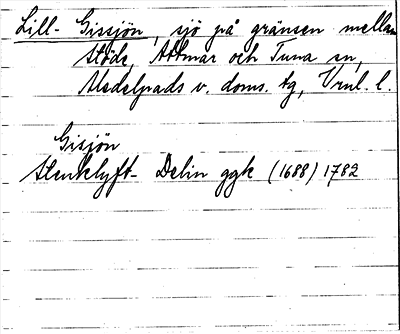 Lill-Gissjön, sjö på gränsen mellan
Stöde, Attmar och Tuna sn,
Medelpads v. doms. tg, Vrnl. l.
Gisjön
Stenklyft- Delin ggk (1688) 1782